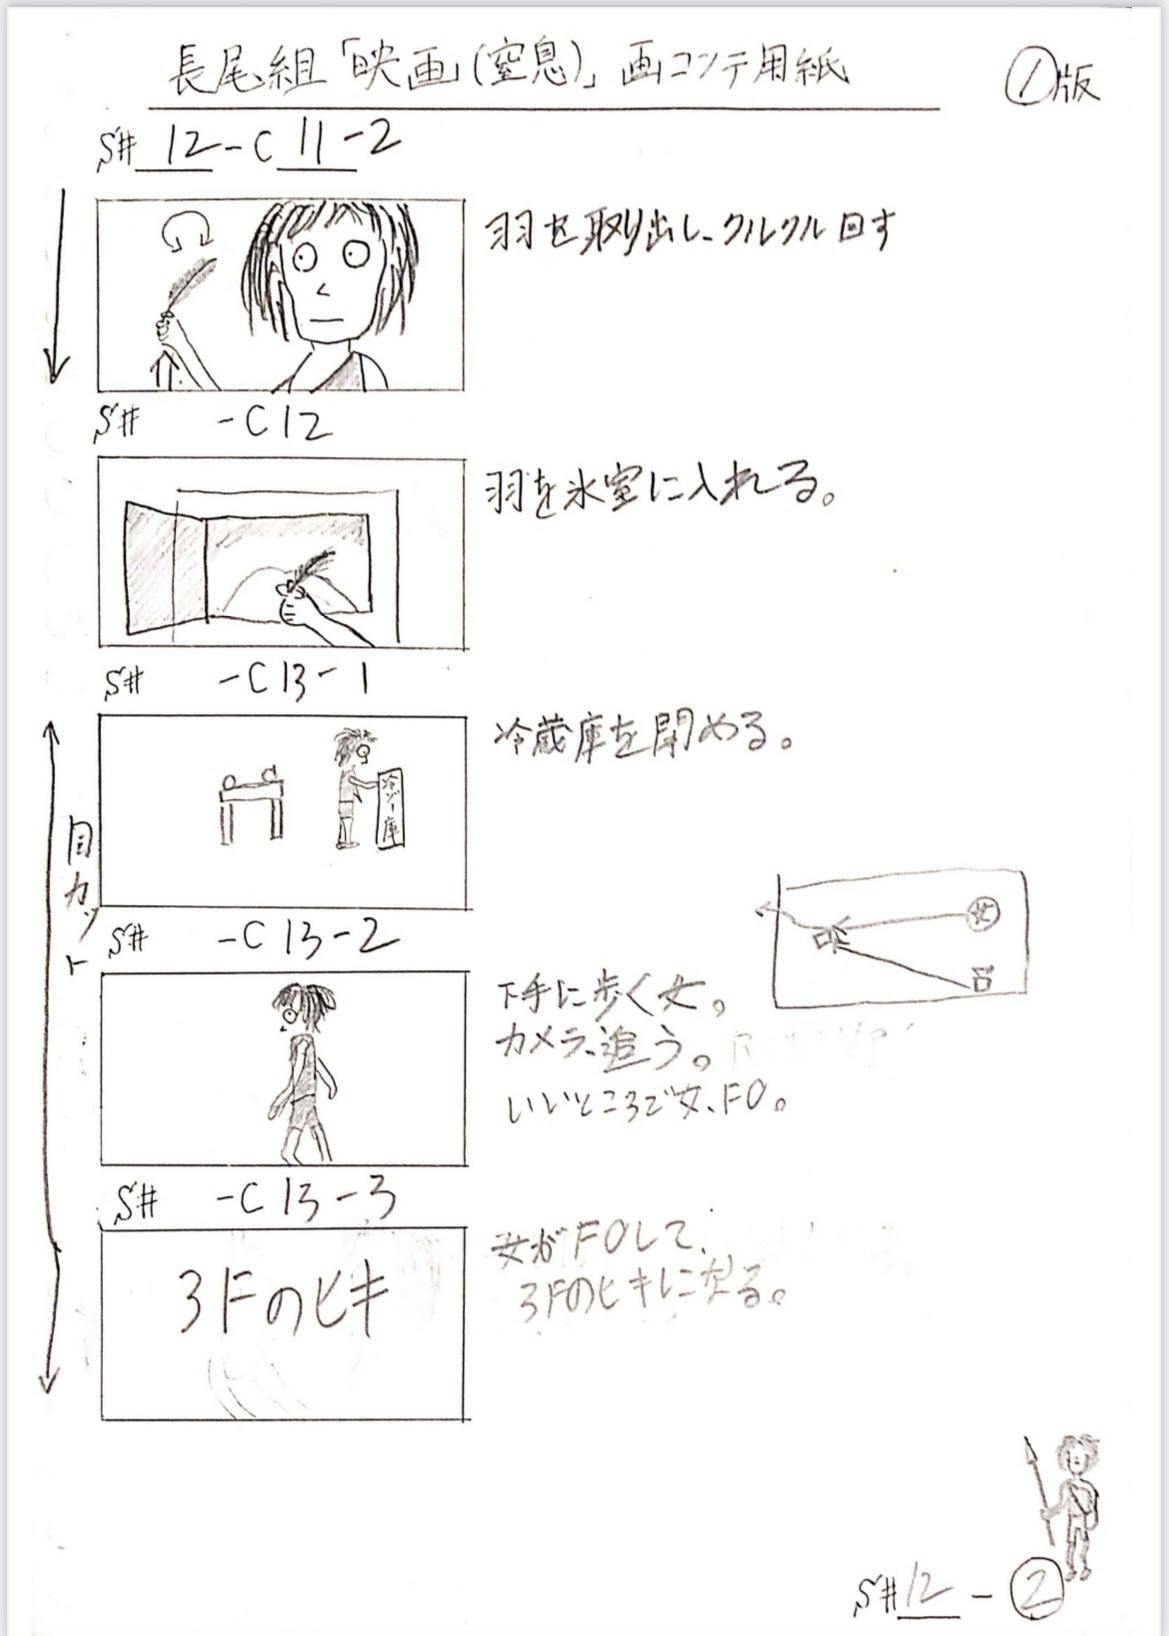 長尾組「映画(窒息)」画コンテ用紙
①版
S# 12 - C 11 - 2
羽を取り出し、クルクル回す
S# - C 12
羽を氷室に入れる。
S# - C 13 - 1
冷蔵庫を閉める。
冷ゾー庫
同カット
S# - C 13 - 2
女
下手に歩く女。
カメラ、追う。
いいところで女、FO。
S# - C 13 - 3
3Fのヒキ
女がFOして、
3Fのヒキになる。
S# 12 - ②